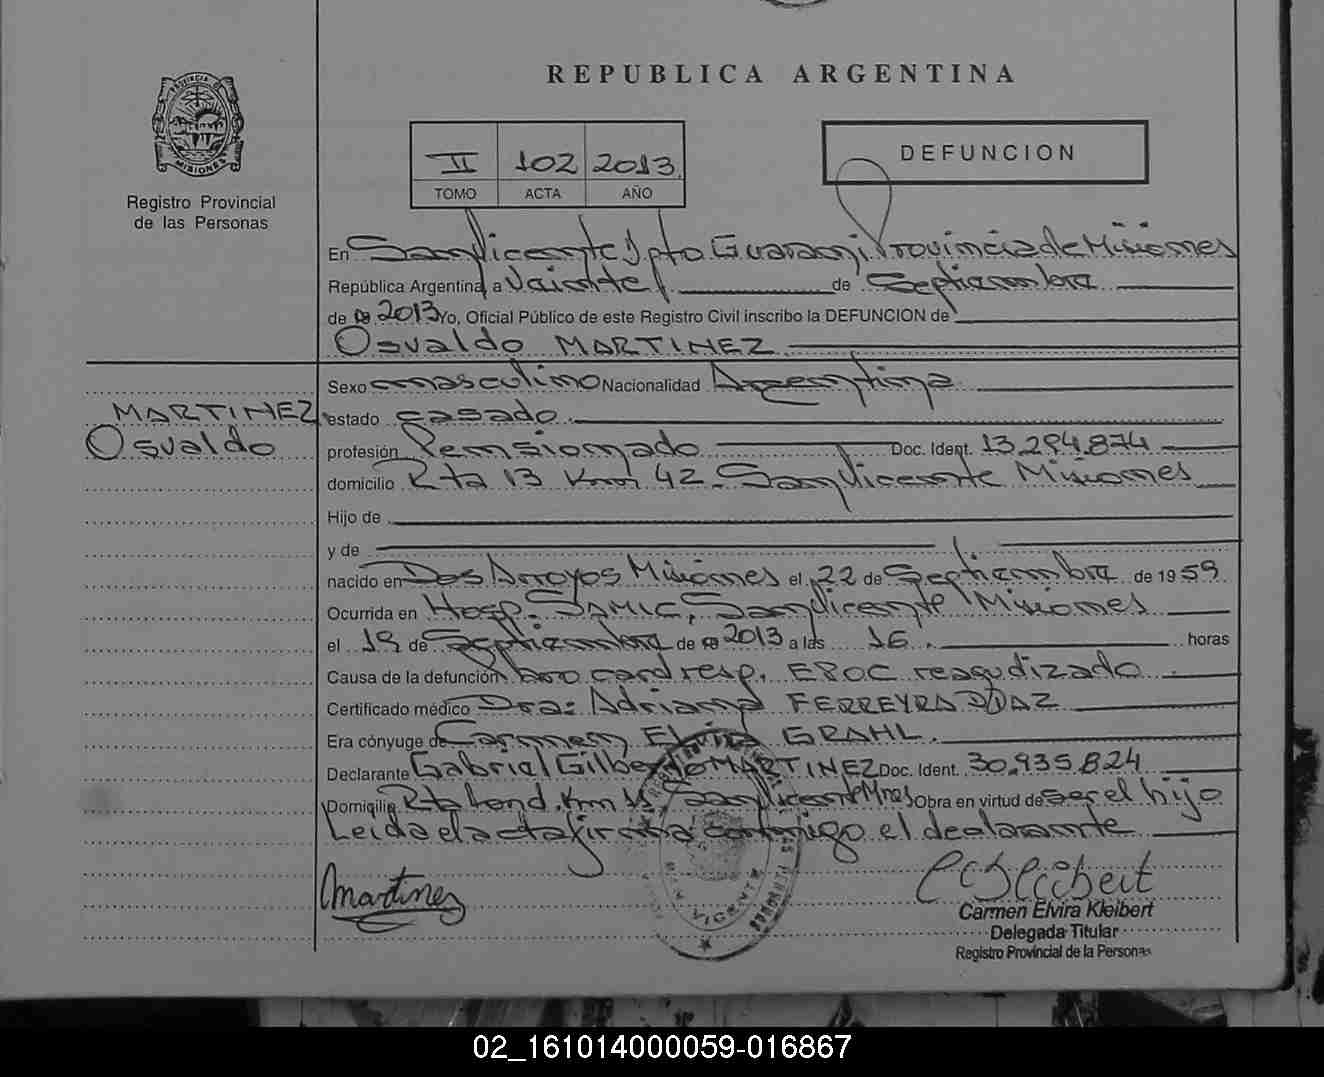 REPUBLICA ARGENTINA
PROVINCIA D
MISIONES
Registro Provincial
de las Personas
II 102 2013
TOMO ACTA AÑO
DEFUNCION
En San Vicente Dpto Guarani Provincia de Misiones
República Argentina, a Veinte de Septiembre
de 2013 Yo, Oficial Público de este Registro Civil inscribo la DEFUNCION de
Osvaldo MARTINEZ
Sexo masculino Nacionalidad Argentina
MARTINEZ
Osvaldo
estado casado
profesión Pensionado Doc. Ident. 13.294.874
domicilio Rta 13 Km 42. San Vicente Misiones
Hijo de
y de
nacido en Dos Arroyos Misiones el 22 de Septiembre de 1959
Ocurrida en Hosp. SAMIC, San Vicente Misiones
el 19 de Septiembre de 2013 a las 16. horas
Causa de la defunción card resp. EPOC reagudizado
Certificado médico Dra: Adriana FERREYRA DIAZ
Era cónyuge de Carmen Elvira GRAHL.
Declarante Gabriel Gilberto MARTINEZ Doc. Ident. 30.935.824
Domicilio Rta Km San Vicente Mnes Obra en virtud de ser el hijo
Leida el acta firma conmigo el declarante
Martinez
SAN VICENTE
Carmen Elvira Kleibert
Delegada Titular
Registro Provincial de la Personas
02_161014000059-016867